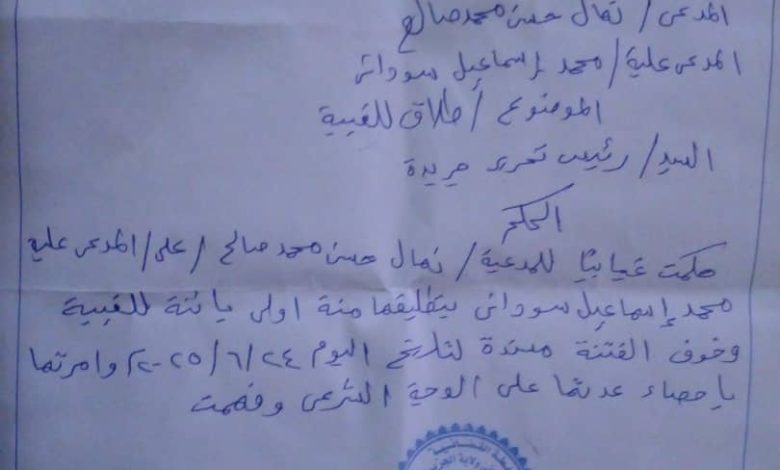 المدعى / نمال حسن محمد صالح
المدعى عليه / محمد إسماعيل سودانى
الموضوع / طلاق للغيبة
السيد / رئيس تحرير جريدة
الحكم
حكمت غيابيًا للمدعية / نمال حسن محمد صالح / على / المدعى عليه
محمد إسماعيل سودانى بتطليقها منة اولى بائنة للغيبة
وخوف الفتنة مسندة لتاريخ اليوم ٢٠٢٥/٦/٢٤ وامرتها
بإحصاء عدتها على الوجة الشرعى وفهمت
القضائية
ولاية